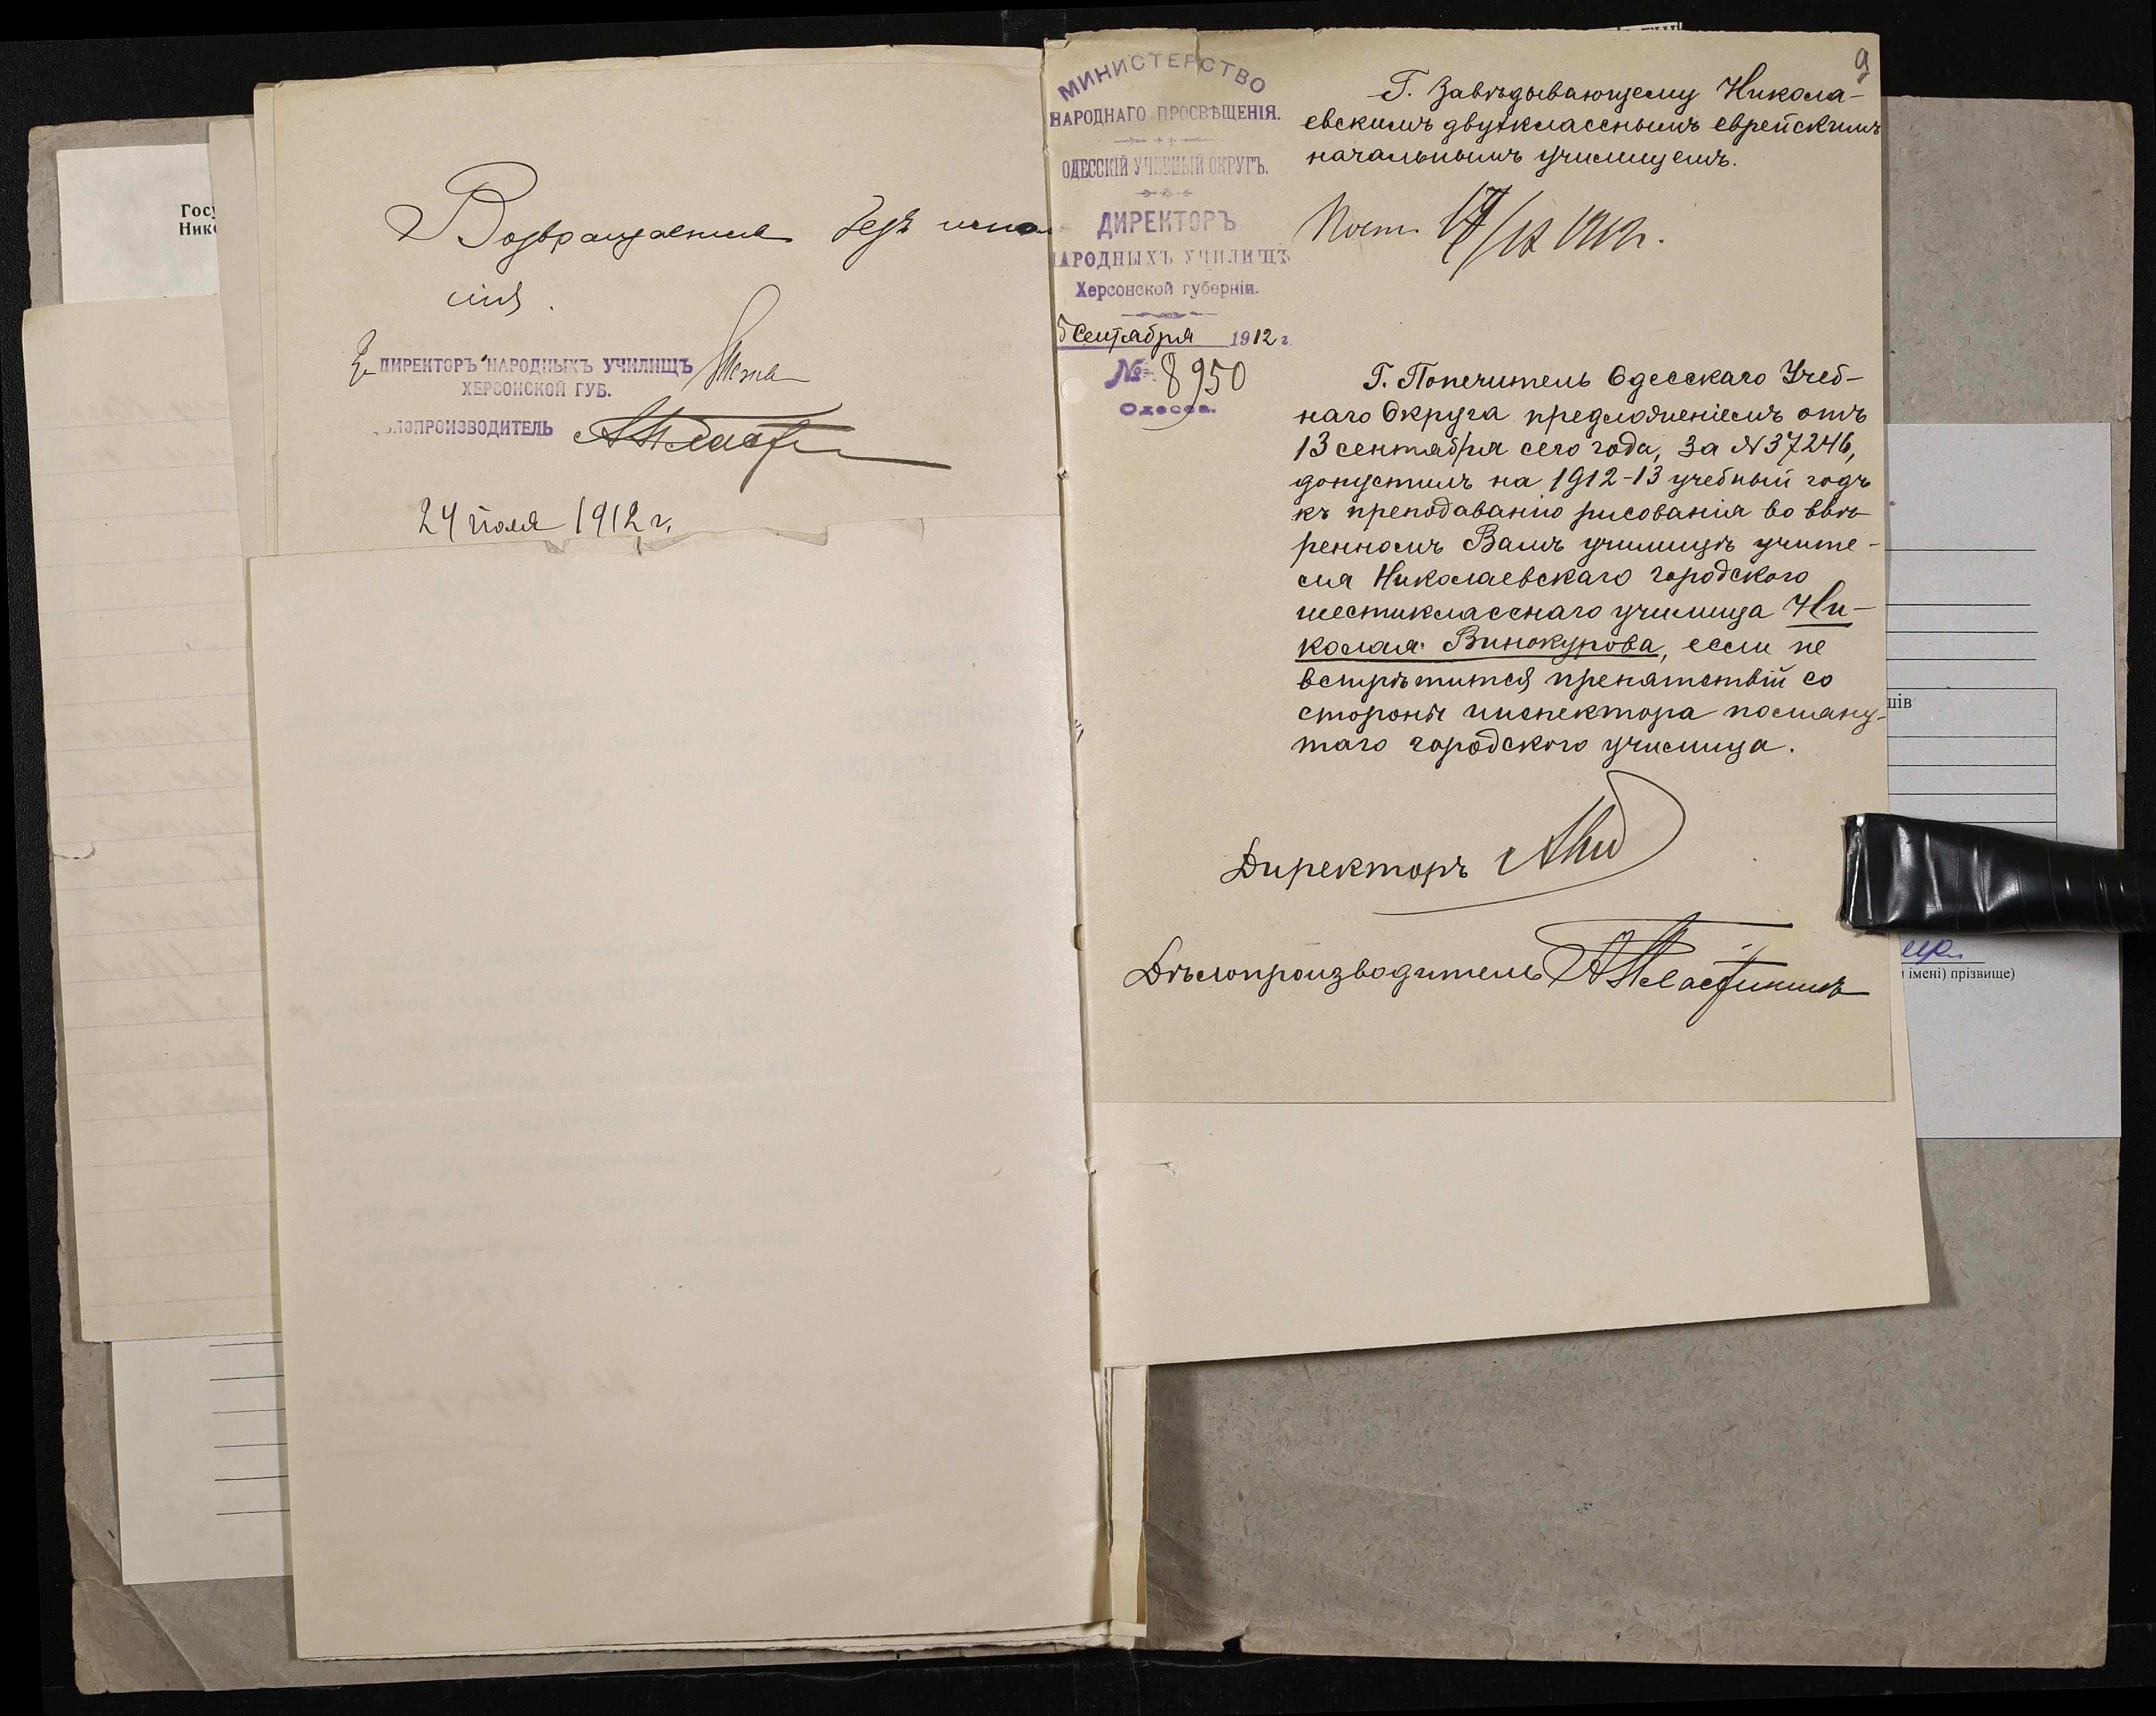 Госу
Нико
Возвращается безъ испол
нія.
За ДИРЕКТОРЪ НАРОДНЫХЪ УЧИЛИЩЪ
ХЕРСОНСКОЙ ГУБ.
ѢЛОПРОИЗВОДИТЕЛЬ
24 іюля 1912 г.
9
МИНИСТЕРСТВО
НАРОДНАГО ПРОСВѢЩЕНІЯ.
ОДЕССКІЙ УЧЕБНЫЙ ОКРУГЪ.
ДИРЕКТОРЪ
НАРОДНЫХЪ УЧИЛИЩЪ
Херсонской губерніи.
5 Сентября 1912 г.
№ 8950
Одесса.
Г. Завѣдывающему Никола-
евскимъ двухкласснымъ еврейскимъ
начальнымъ училищемъ.
Пост. 17/IX 1912 г.
Г. Попечитель Одесскаго Учеб-
наго Округа предложеніемъ отъ
13 сентября сего года, за №37246,
допустилъ на 1912-13 учебный годъ
къ преподаванію рисованія во ввѣ-
ренномъ Вамъ училищѣ учите-
ля Николаевскаго городского
шестикласснаго училища Ни-
колая Винокурова, если не
встрѣтится препятствій со
стороны инспектора помяну-
таго городского училища.
Директоръ
Дѣлопроизводитель
шів
імені) прізвище)